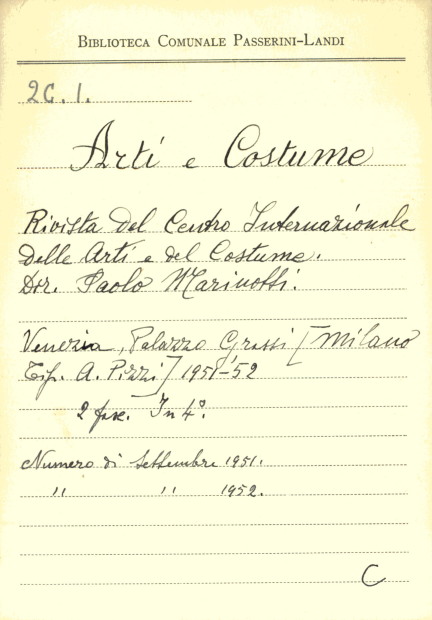 BIBLIOTECA COMUNALE PASSERINI-LANDI
2C. 1.
Arti e Costume
Rivista del Centro Internazionale
delle Arti e del Costume.
Dir. Paolo Marinotti.
Venezia, Palazzo Grassi [Milano
Tip. A. Pizzi] 1951-52
2 fasc. In 4°.
Numero di Settembre 1951.
" " 1952.
C